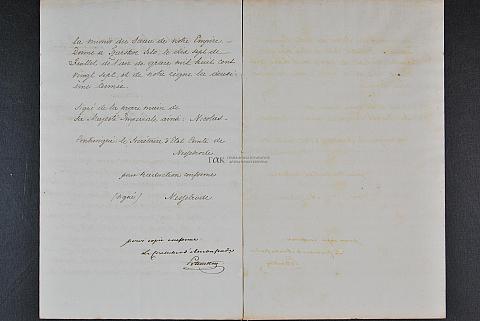 la munir du Sceau de notre Empire.
Donné à Zarskoe Selo, le dix sept de
Juillet, de l'an de grace mil huit cent
vingt sept et de notre règne la deux-
ième année.
Signé de la propre main de
Sa Majesté Impériale ainsi: Nicolas.
Contresigné le Secrétaire d'Etat Comte de
Nesselrode
pour traduction conforme
(signé) Nesselrode
ГАК
pour copie conforme: